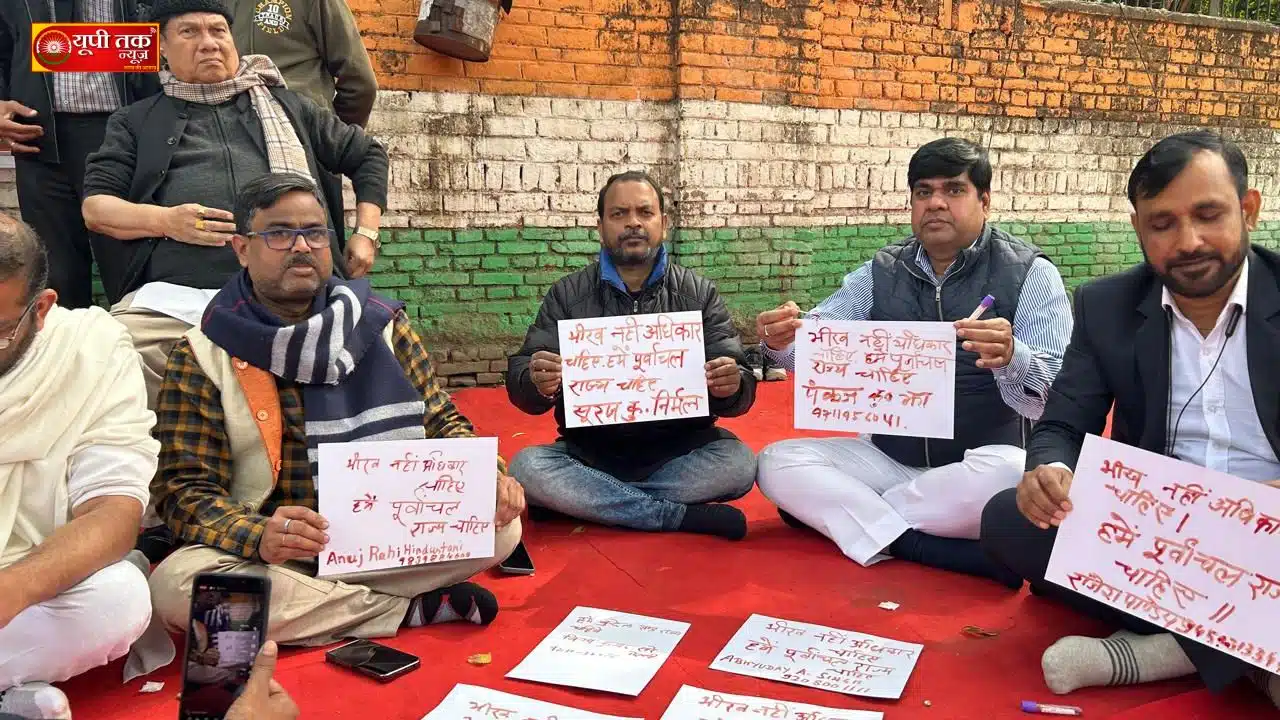 यूपी तक
न्यूज़
10
भीख नहीं अधिकार
चाहिए
हमें पूर्वांचल
राज्य चाहिए
Anuj Rahi Hindustani
भीख नहीं अधिकार
चाहिए हमें पूर्वांचल
राज्य चाहिए
सूरज कु. निर्मल
भीख नहीं अधिकार
चाहिए हमें पूर्वांचल
राज्य चाहिए
पंकज कु० झा
भीख नहीं अधिका
चाहिए!
हमें पूर्वांचल रा
चाहिए!!
भीख नहीं अधिकार
हमें पूर्वांचल चाहिए
ABHYUDAY A. SINGH
भीख नहीं
भीख नहीं अधिकार